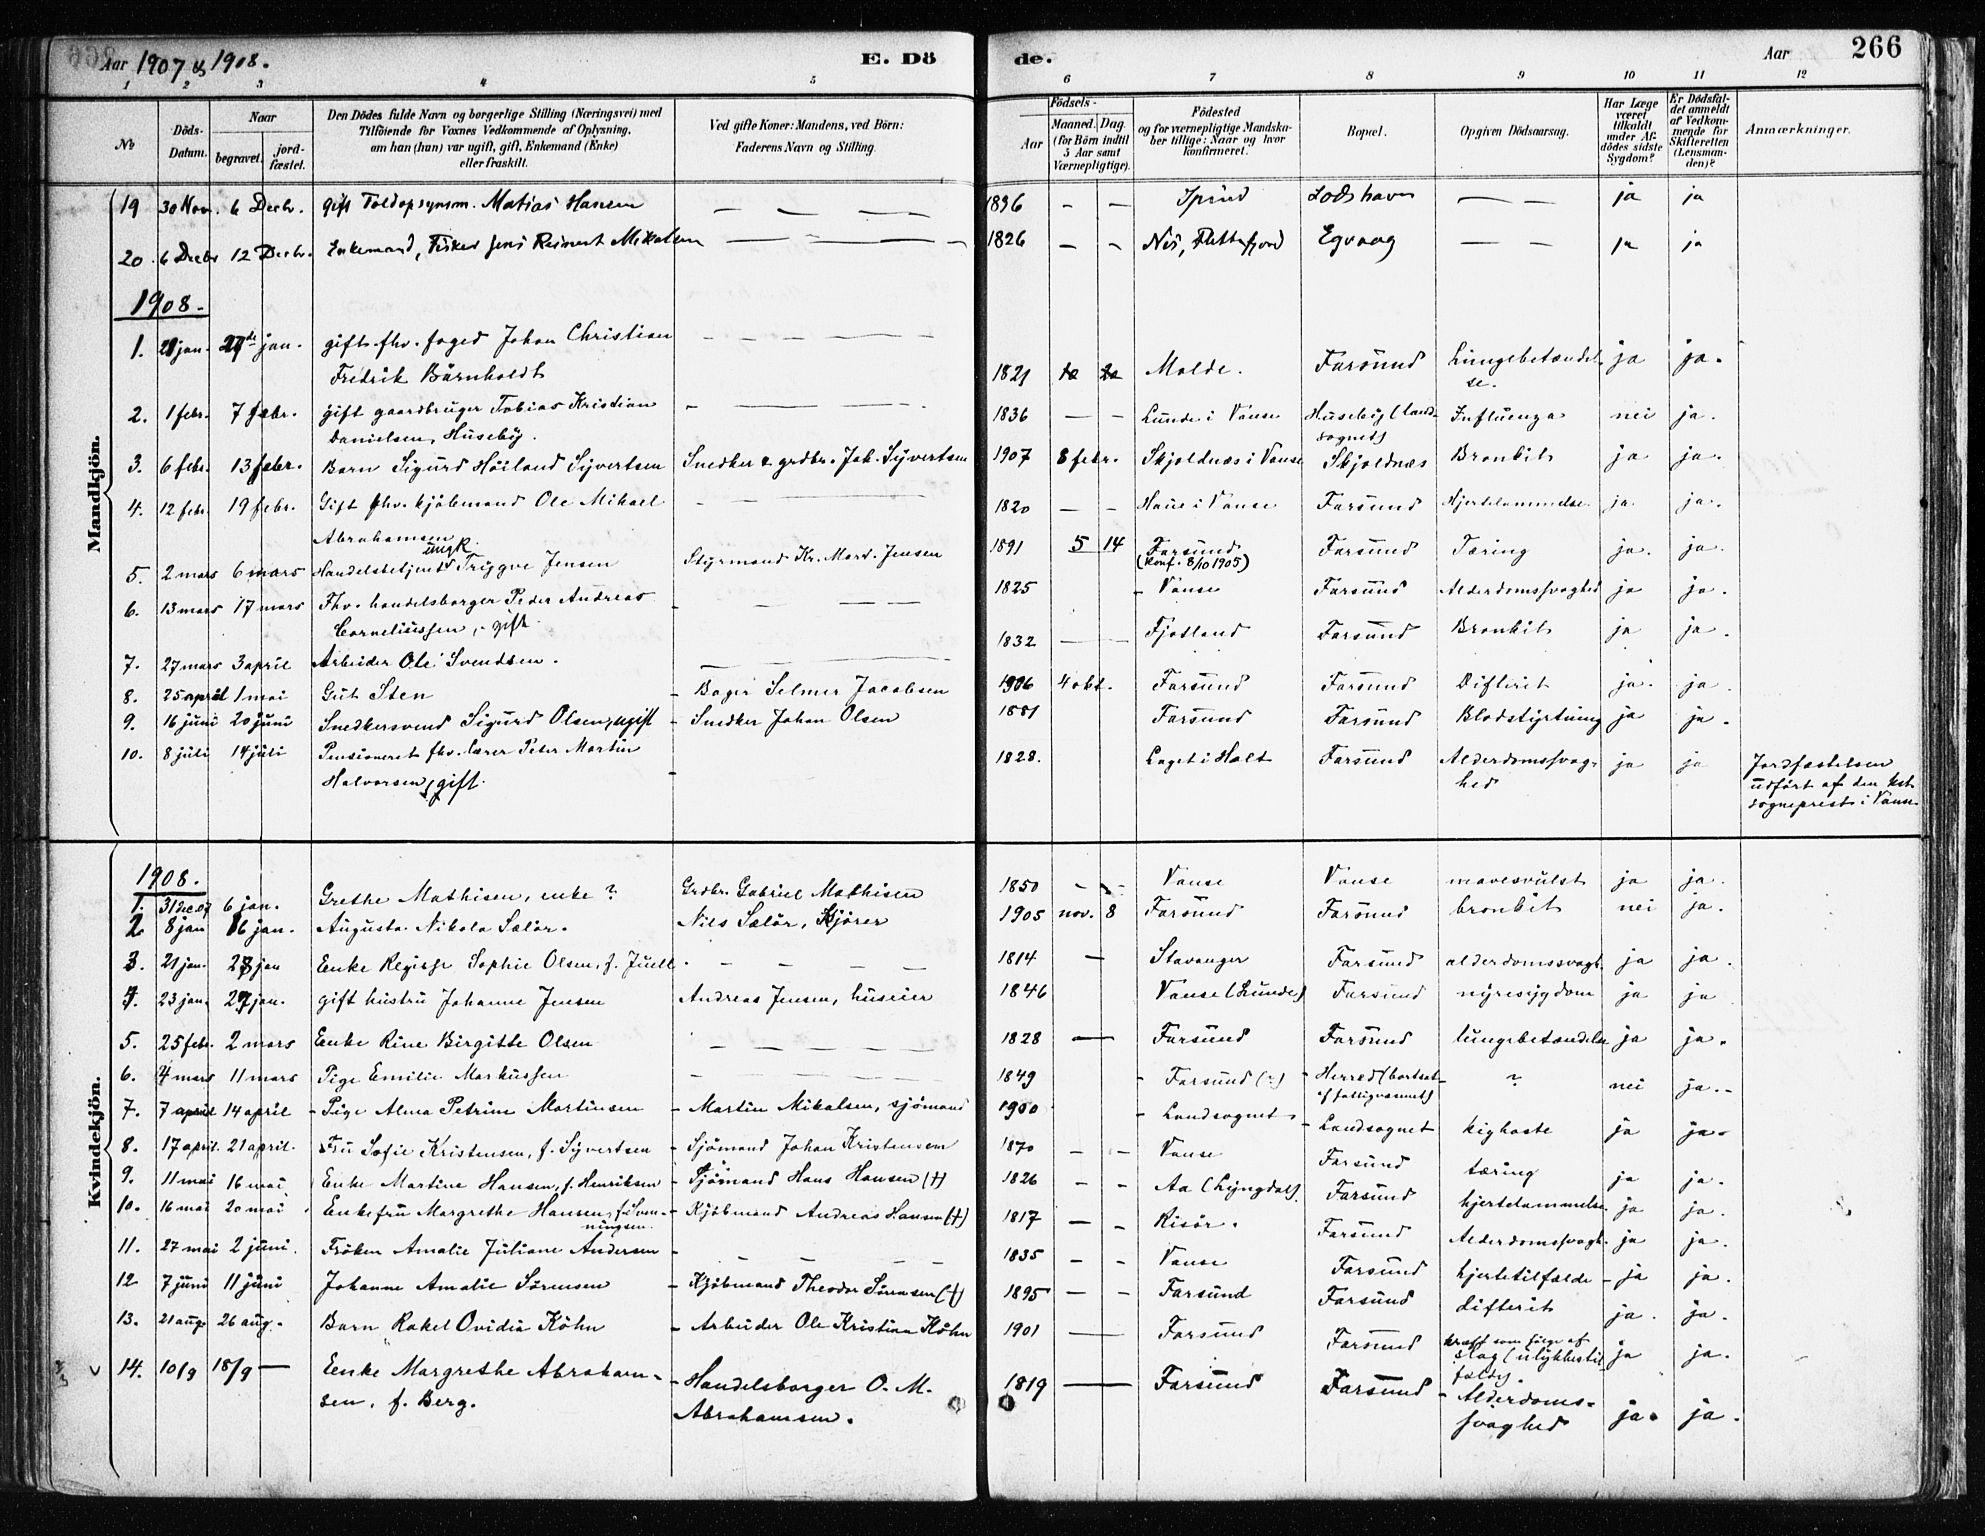 Aar 1907 & 1908.
E. Dö
de.
Aar
266
1 2 3 4 5 6 7 8 9 10 11 12
No
Döds-Datum.
Naar
begravet.
jord-fæstet.
Den Dödes fulde Navn og borgerlige Stilling (Næringsvei) med
Tilföiende for Voxnes Vedkommende af Oplysning,
om han (hun) var ugift, gift, Enkemand (Enke)
eller fraskilt.
Ved gifte Koner: Mandens, ved Börn:
Faderens Navn og Stilling.
Födsels-
Aar
Maaned. Dag.
(for Börn indtil
5 Aar samt
Værnepligtige).
Födested
og for værnepligtige Mandska-
ber tillige: Naar og hvor
konfirmeret.
Bopæl.
Opgiven Dödsaarsag.
Har Læge
været
tilkaldt
under Af-
dödes sidste
Sygdom?
Er Dödsfal-
det anmeldt
af Vedkom-
mende for
Skifteretten
(Lensman-
den)?
Anmærkninger.
Mandkjön.
19 30 Nov. 6 Decbr. gift Toldopsynsm. Matias Hansen — — — — 1836 – — Spind Lodshavn — — ja ja
20. 6 Decbr 12 Decbr. Enkemand, Fisker Jens Reinert Mikalsen — — — — 1826 – – Nes, Flekkefjord Egvaag — — ja ja
1908.
1. 21 jan. 27de jan. gift fhv. foged Johan Christian
Fredrik Bärnholdt — — — — 1821 Molde. Farsund Lungebetændel-
se. ja ja.
2. 1 febr. 7 febr. gift gaardbruger Tobias Kristian
Danielsen, Huseby. – — — — 1836 — – Lunde i Vanse Huseby (land-
sognet) Influenza nei ja.
3. 6 febr. 13 febr. Barn Sigurd Höiland Syvertsen Snedker & grdbr. Joh. Syvertsen 1907 8 febr. Skjoldnæs i Vanse Skjoldnæs Bronkit ja ja.
4. 12 febr. 19 febr. Gift fhv. kjöbmand Ole Mikael
Abrahamsen – — — — 1820 — – Haue i Vanse Farsund Hjertelammelse ja. ja.
5. 2 mars 6 mars Handelsbetjent ungk. Trygve Jensen Styrmand Kr. Mart. Jensen 1891 5 14 Farsund
(Konf. 8/10 1905) Farsund Tæring ja. ja.
6. 13 mars 17 mars Fhv. handelsborger Peder Andreas
Corneliussen, – gift. – — — — 1825 – Vanse Farsund Alderdomssvaghed ja ja.
7. 27 mars 3 april Arbeider Ole Svendsen. — 1832 — – Fjotland Farsund Bronkit ja ja.
8. 25 april 1 mai Gut Sten – Bager Selmer Jacobsen 1906 4 okt. Farsund Farsund Difterit ja. ja.
9. 16 juni 20 juni Snedkersvend Sigurd Olsen, ugift – Snedker Johan Olsen 1881 Farsund Farsund Blodstyrtning ja ja.
10. 8 juli 14 juli Pensioneret fhv. lærer Peter Martin
Halvorsen, gift. – 1828. Laget i Holt Farsund Alderdomssvag-
hed ja ja Jordfæstelsen
udfört af den kst
sogneprest i Vanse
Kvindekjön.
1908.
1. 31 Dec 07 6 jan. Grethe Mathisen, enke ? Grdbr. Gabriel Mathisen 1850 – – Vanse Vanse mavesvulst ja ja.
2. 8 jan 16 jan. Augusta Nikola Salör. Nils Salör, Kjörer 1905 nov. 8 Farsund Farsund bronkit nei ja.
3. 21 jan. 28 jan Enke Regisse Sophie Olsen, f. Juell. – — — — 1814 — Stavanger Farsund alderdomssvagh. ja ja.
4. 23 jan. 27 jan. gift hustru Johanne Jensen Andreas Jensen, huseier 1846 Vanse (Lunde) Farsund nyresygdom ja ja
5. 25 febr. 2 mars Enke Rine Birgitte Olsen — — — — 1828 — Farsund Farsund lungebetændelse ja ja.
6. 4 mars 11 mars Pige Emilie Markussen – — — — 1849 – Farsund (?) – Herred (bortsat
af fattigvæsnet) – ? nei ja. –
7. 7 april 14 april – Pige Alma Petrine Martinsen – Martin Mikalsen, sjömand 1900 – Landsognet – Landsognet kighoste ja ja.
8. 17 april. 21 april. Fru Sofie Kristensen, f. Syvertsen – Sjömand Johan Kristensen 1870 – – Vanse Farsund tæring ja ja.
9. 11 mai 16 mai Enke Martine Hansen, f. Henriksen – Sjömand Hans Hansen (†) 1826 – – Aa (Lyngdal) Farsund hjertelammelse ja ja.
10. 16 mai 20 mai Enkefru Margrethe Hansen, f. Svenningsen. – Kjöbmand Andreas Hansen (†) 1817 – – Risör. Farsund Alderdomssvagh. ja ja.
11. 27 mai 2 juni. Fröken Amalie Juliane Andersen – — — — 1835 – – Vanse Farsund hjertetilfælde – ja ja.
12 7 juni 11 juni Johanne Amalie Sörensen – Kjöbmand Theodor Sörensen (†) 1895 – – Farsund Farsund difterit ja. ja.
13. 21 aug. 26 aug. Barn Rakel Ovidia Köhn – Arbeider Ole Kristian Köhn 1901 — Farsund Farsund som fölge af
slag (ulykkestil-
fælde) ja ja.
v 14. 10/9 18/9 — Enke Margrethe Abraham-
sen, f. Berg. – Handelsborger O. M.
Abrahamsen. 1819 — Farsund Farsund – Alderdoms-
svaghed ja. ja.